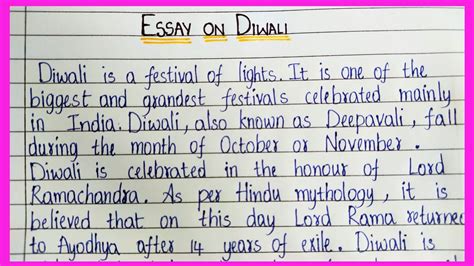 ESSAY ON DIWALI
Diwali is a festival of lights. It is one of the
biggest and grandest festivals celebrated mainly
in India. Diwali, also known as Deepavali, fall
during the month of October or November.
Diwali is celebrated in the honour of Lord
Ramachandra. As per Hindu mythology, it is
believed that on this day Lord Rama returned
to Ayodhya after 14 years of exile. Diwali is